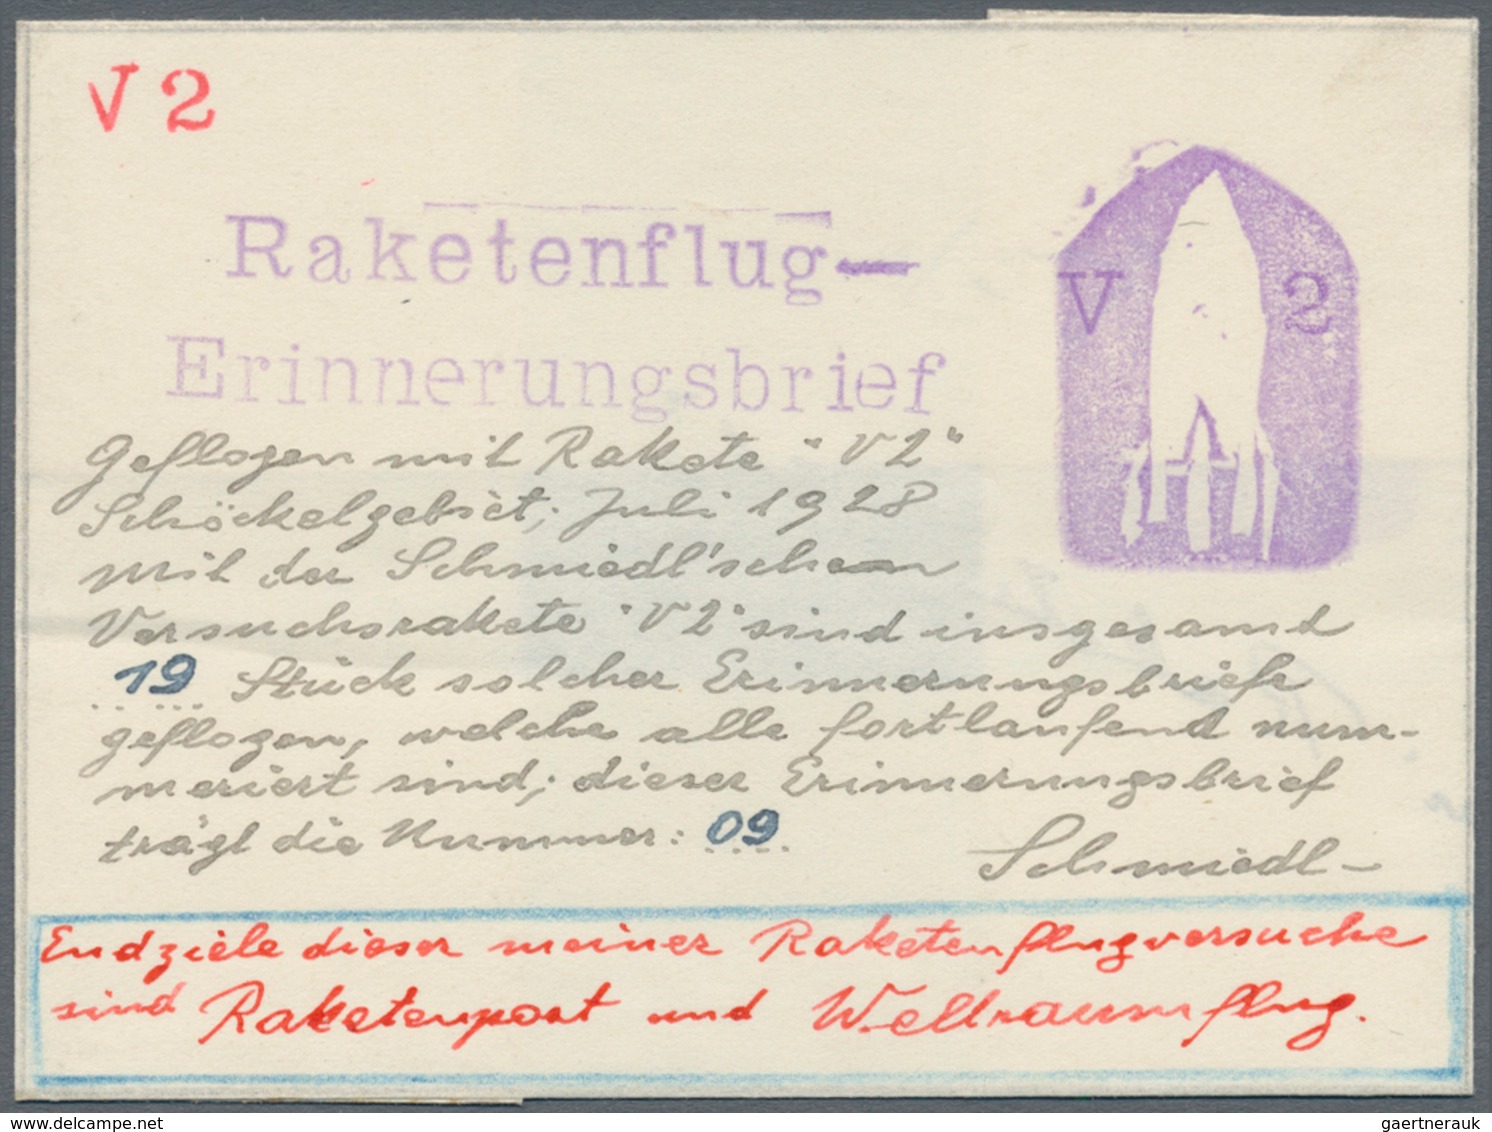 V 2
Raketenflug-
Erinnerungsbrief
V 2
Geflogen mit Rakete "V2"
Schöckelgebiet, Juli 1928
Mit der Schmiedl'schen
Versuchsrakete "V2" sind insgesamt
19 Stück solcher Erinnerungsbriefe
geflogen, welche alle fortlaufend num-
meriert sind; dieser Erinnerungsbrief
trägt die Nummer: 09
Schmiedl-
Endziele dieser meiner Raketenflugversuche
sind Raketenpost und Weltraumflug.
gaertnerauk @ delcampe.net